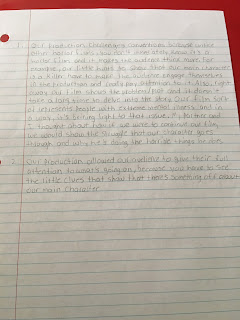 1. Our production challenges conventions because unlike
other horror films, how so? It more likely since it's a
winter film, and it makes the audience think more. For
example, our film hints to show that our main character
is a killer. have to make the audience engage themselves
in the production and really pay attention to it. Also, right
away our film shows the problem/plot and it doesn't
take a long time to delve into the story. Our film sort
of represents people with extreme mental illness and in
a way, it's bringing light to that issue. My partner and
I thought about how if we were to continue our film,
we would show the struggle that our character goes
through and why he's doing the horrible things he does.
2. Our production allowed our audience to give their full
attention to what's going on, because you have to see
the little clues that show that there's something off about
our main character.